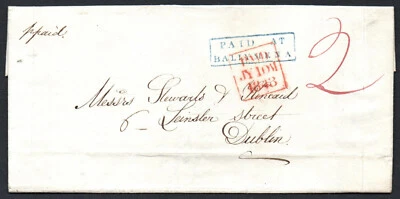 ppaid.
PAID AT
BALLYMENA
2
JY 10 M
1843
Messrs Stewarts & Kincaid
6 Leinster Street
Dublin